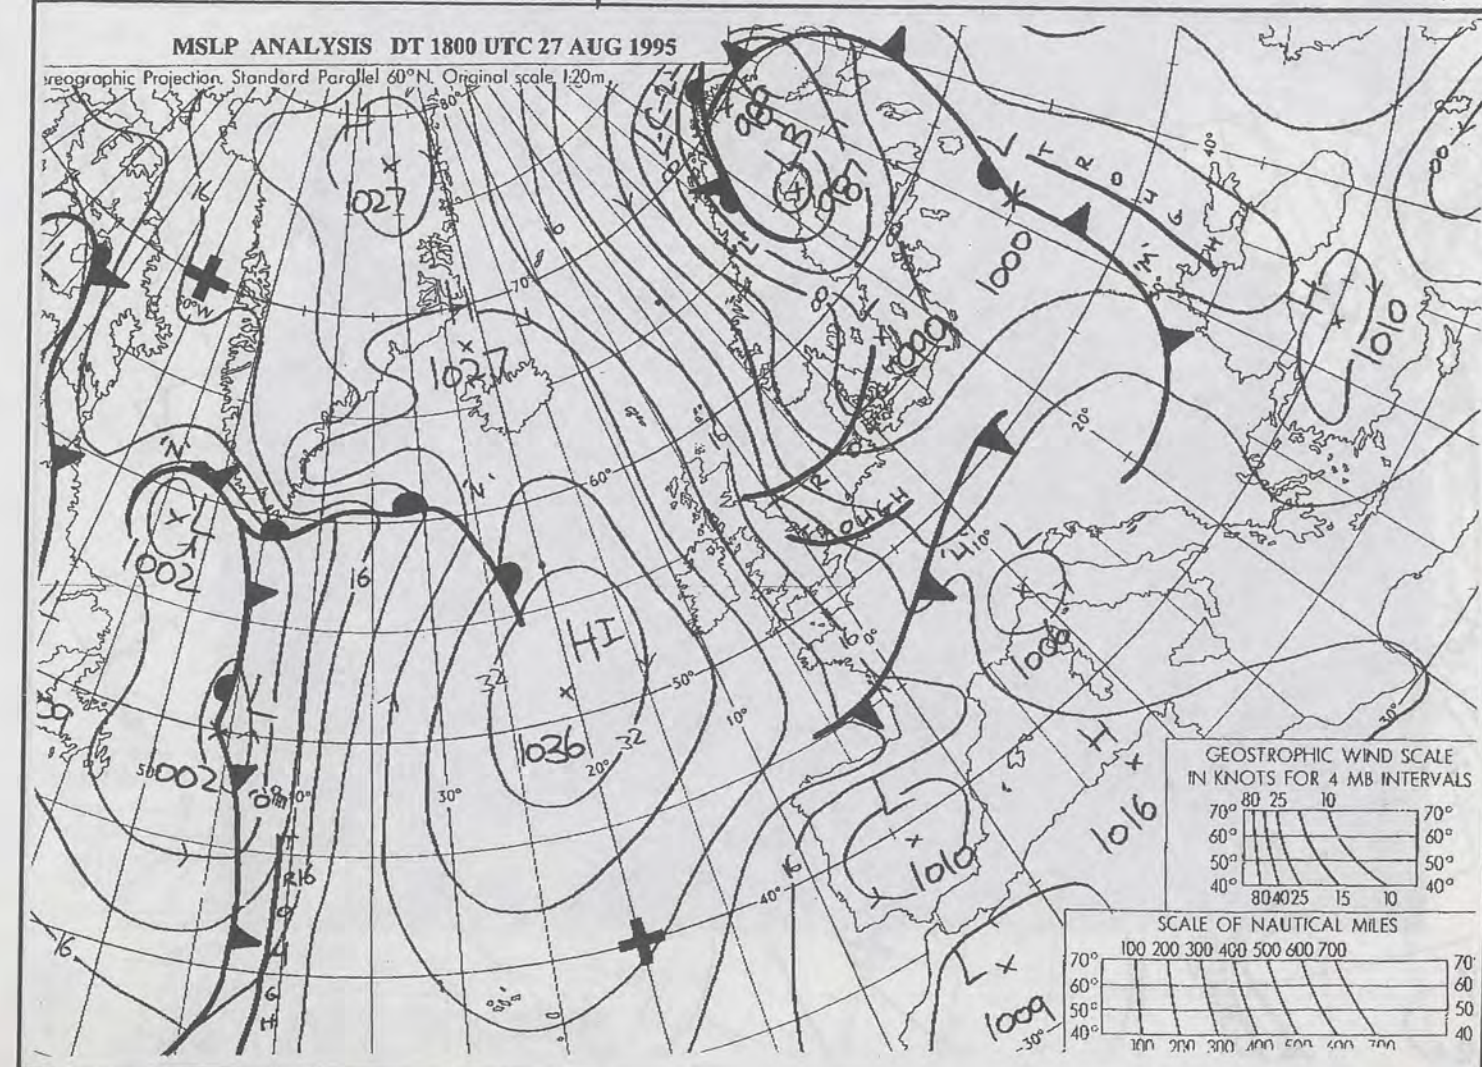 MSLP ANALYSIS DT 1800 UTC 27 AUG 1995
reographic Projection. Standard Parallel 60°N. Original scale 1:20m
H
1027
80°
16
70°
1027
'N'
L
1002
16
60°
HI
32
1036
32
50°
20°
10°
30°
L
1002
TROUGH
16
16
40°
L
987
1000
L
TROUGH
40°
'M'
H
1010
L
1009
20°
TROUGH
10°
L
16
0°
H
1016
L
1010
16
L
1009
30°
30°
GEOSTROPHIC WIND SCALE
IN KNOTS FOR 4 MB INTERVALS
80 25 10
70° 70°
60° 60°
50° 50°
40° 40°
80 40 25 15 10
SCALE OF NAUTICAL MILES
100 200 300 400 500 600 700
70° 70°
60° 60
50° 50
40° 40
100 200 300 400 500 600 700